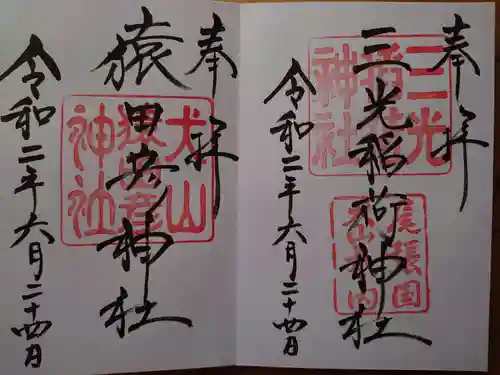 奉拝
三光稲荷神社
三光
稲荷
神社
尾張国
犬山
内
令和二年六月二十四日
奉拝
猿田彦神社
犬山
猿田彦
神社
令和二年六月二十四日